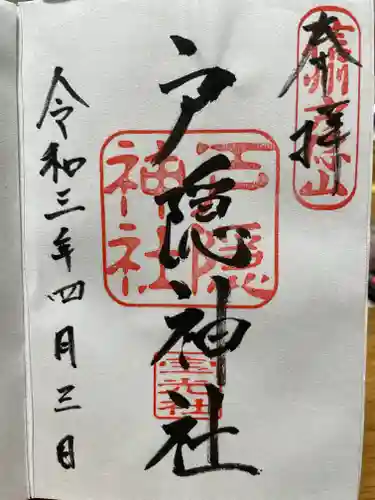 奉拝
信州戸隠山
戸隠神社
戸隠神社
宝光社
令和三年四月三日